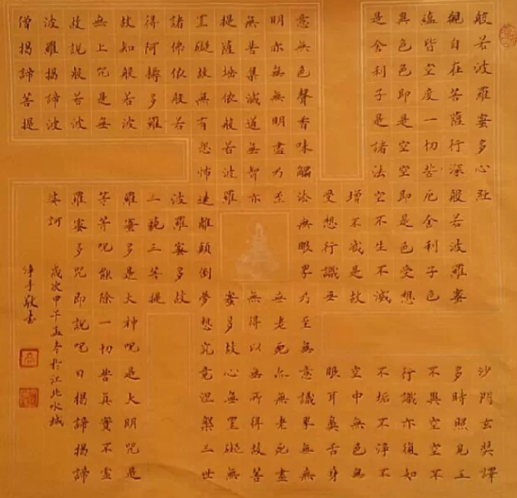 般若波羅蜜多心經
沙門玄奘譯
觀自在菩薩行深般若波羅蜜多時照見五
蘊皆空度一切苦厄舍利子色不異空空不
異色色即是空空即是色受想行識亦復如
是舍利子是諸法空不生不滅不垢不淨不
增不減是故空中無色無
受想行識無眼耳鼻舌身
意無色聲香味觸法無眼界乃至無意識界無無
明亦無無明盡乃至無老死亦無老死盡
無苦集滅道無智亦無得以無所得故菩
提薩埵依般若波羅蜜多故心無罣礙無
罣礙故無有恐怖遠離顛倒夢想究竟涅槃三世
諸佛依般若波羅蜜多故
得阿耨多羅三藐三菩提
故知般若波羅蜜多是大神呪是大明呪是
無上呪是無等等呪能除一切苦真實不虛
故說般若波羅蜜多呪即說呪曰揭諦揭諦
波羅揭諦波
僧揭諦菩提
娑訶
歲次甲午孟冬於江北水城
淨手敬書